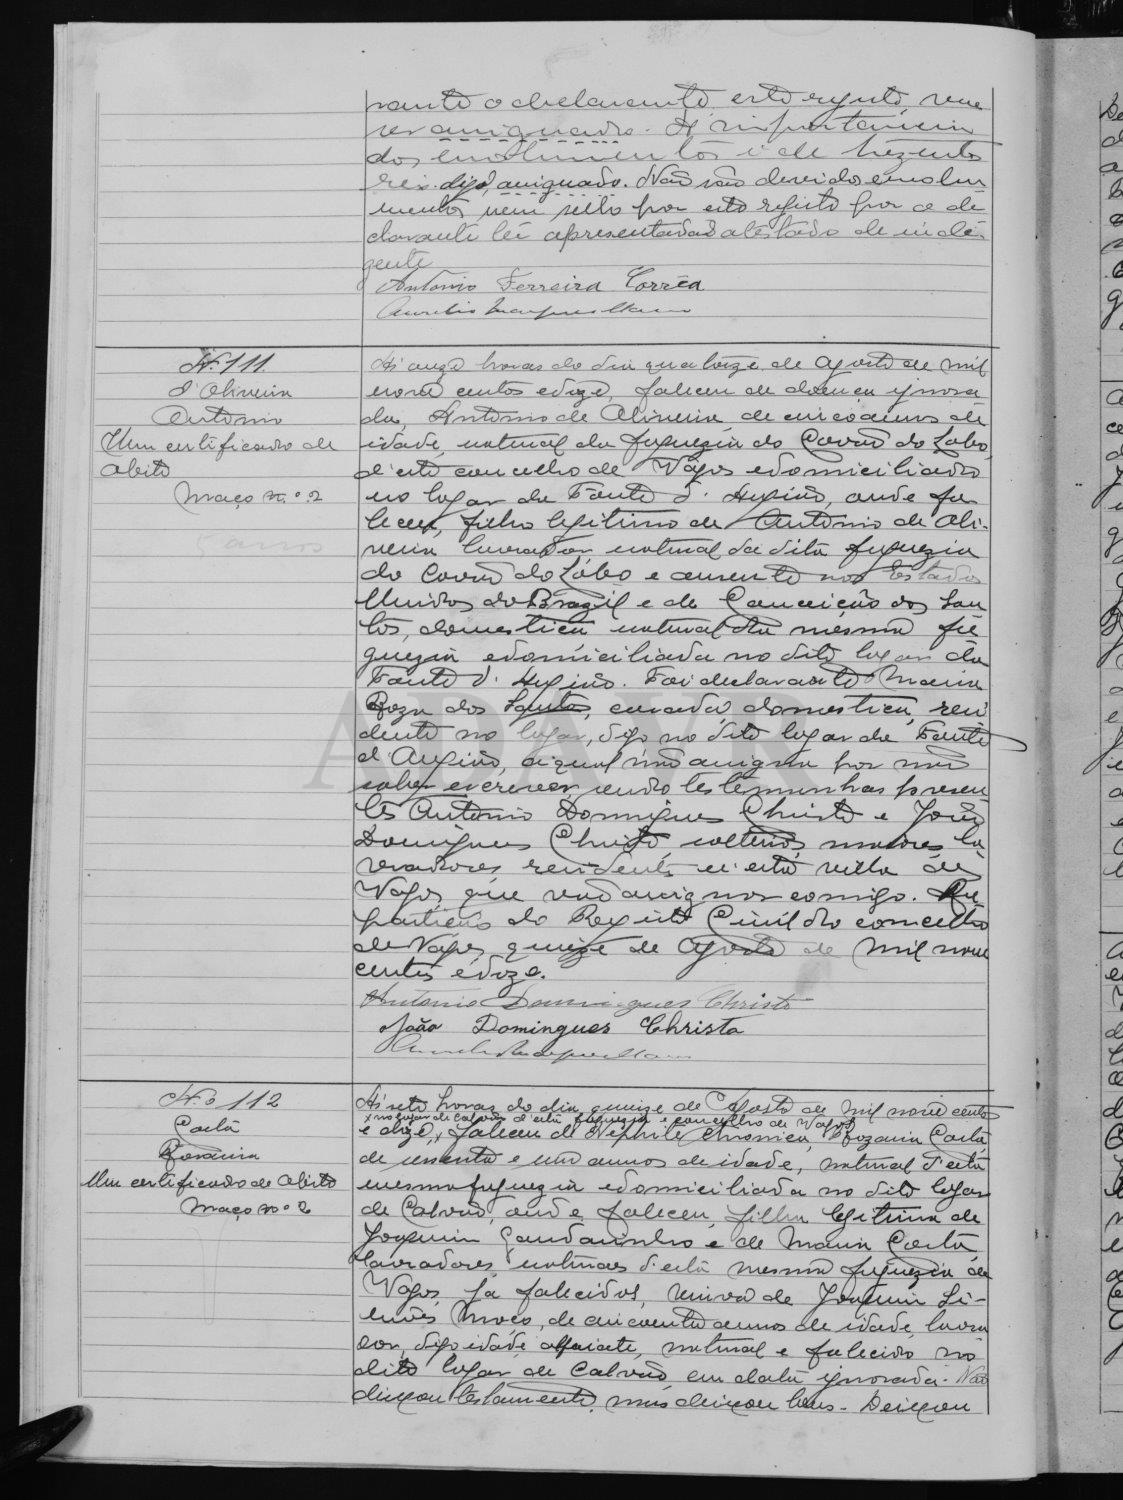 rante o declarante este registo, vae
ser assignado. A importancia
dos emolumentos é de trezentos
reis. digo, assignado. Não são devidos emolu
mentos nem sello por este registo por o de
clarante ter apresentado atestado de indi
gente
Antonio Ferreira Corrêa
Nº 111
d'Oliveira
Antonio
Um certificado de
obito
Maço nº 2
5 annos
Ás onze horas do dia quatorze de Agosto de mil
nove centos e doze, faleceu de doença ignora
da, Antonio de Oliveira, de cinco annos de
idade, natural da freguezia do Covão do Lobo,
d'este concelho de Vagos e domiciliado
no lugar da Fonte d' Angião, onde fa
leceu, filho legitimo de Antonio de Oli-
veira lavrador, natural da dita freguezia
do Covão do Lobo e ausente nos Estados
Unidos do Brazil e de Conceição dos San
tos, domestica natural da mesma fre
guezia e domiciliada no dito lugar da
Fonte d' Angião. Foi declarante Maria
Roza dos Santos, casada, domestica, resi
dente no lugar, digo no dito lugar da Fonte
d'Angião, a qual não assigna por não
saber escrever, sendo testemunhas presen
tes Antonio Domingues Christo e João
Domingues Christo solteiros, maiores la
vradores, residentes n'esta villa de
Vagos que vão assignar comigo. Re
partição do Registo Civil do concelho
de Vagos, quinze de Agosto de mil nove
centos e doze.
Antonio Domingues Christo
João Domingues Christo
ADAVR
Nº 112
Costa
Rosaria
Um certificado de obito
Maço nº 2
Ás sete horas do dia quinze de Agosto de mil nove centos
x no lugar de Calvão d'esta freguezia e concelho de Vagos
e doze, x faleceu de Nephrite chronica, Rozaria Costa
de sessenta e um annos de idade, natural d'esta
mesma freguezia e domiciliada no dito lugar
de Calvão, onde faleceu, filha legitima de
Joaquim Gandarinho e de Maria Costa
lavradores, naturaes d'esta mesma freguezia de
Vagos, já falecidos, viuva de Joaquim Si-
mões Moço, de cincoenta annos de idade, lavra
dor, digo idade alfaiate, natural e falecido no
dito lugar de Calvão em data ignorada. Não
deixou testamento, mas deixou bens. Deixou